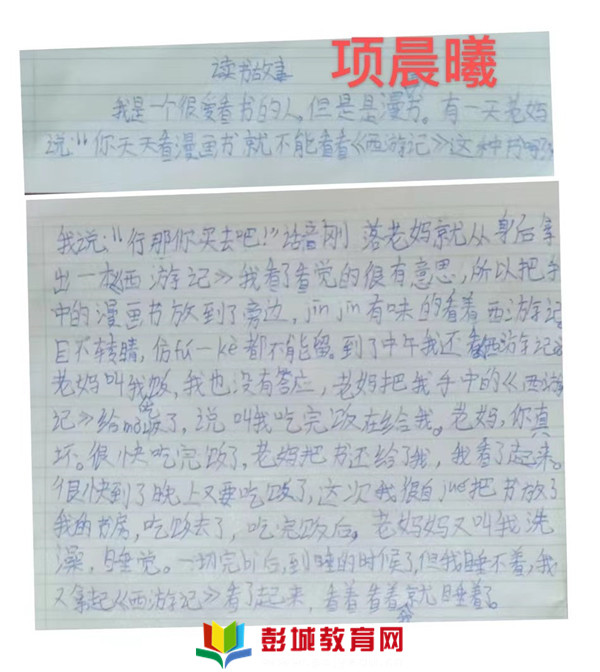 读书故事
项晨曦
我是一个很爱看书的人,但是是漫书。有一天老妈
说:"你天天看漫画书就不能看看《西游记》这种书吗?
我说:"行那你买去吧!"话音刚落老妈就从身后拿
出一本《西游记》我看了看觉的很有意思,所以把手
中的漫画书放到了旁边,jin jin有味的看着西游记
目不转睛,仿fú一kè都不能留。到了中午我还看西游记
老妈叫我吃饭,我也没有答应,老妈把我手中的《西游
记》给mò收了,说叫我吃完饭在给我。老妈,你真
坏。很快吃完饭了,老妈把书还给了我,我看了起来。
很快到了晚上又要吃饭了,这次我很自jué把书放了
我的书房,吃饭去了,吃完饭后。老妈妈又叫我洗
澡,睡觉。一切完bì后,到睡的时候了,但我睡不着,我
又拿起《西游记》看了起来,看着看着就睡着了。
彭城教育网